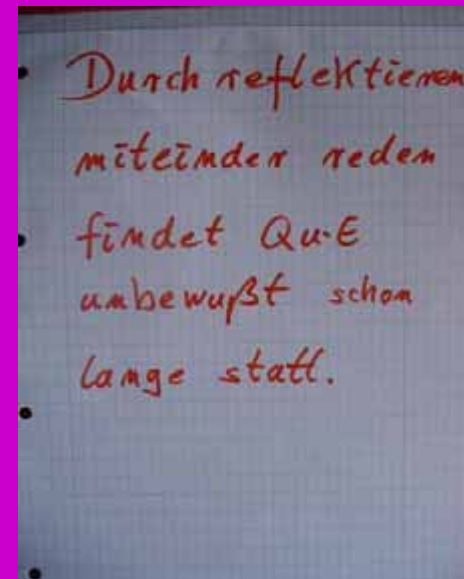 Durch reflektieren
miteinder reden
findet Qu.E
unbewußt schon
lange statt.